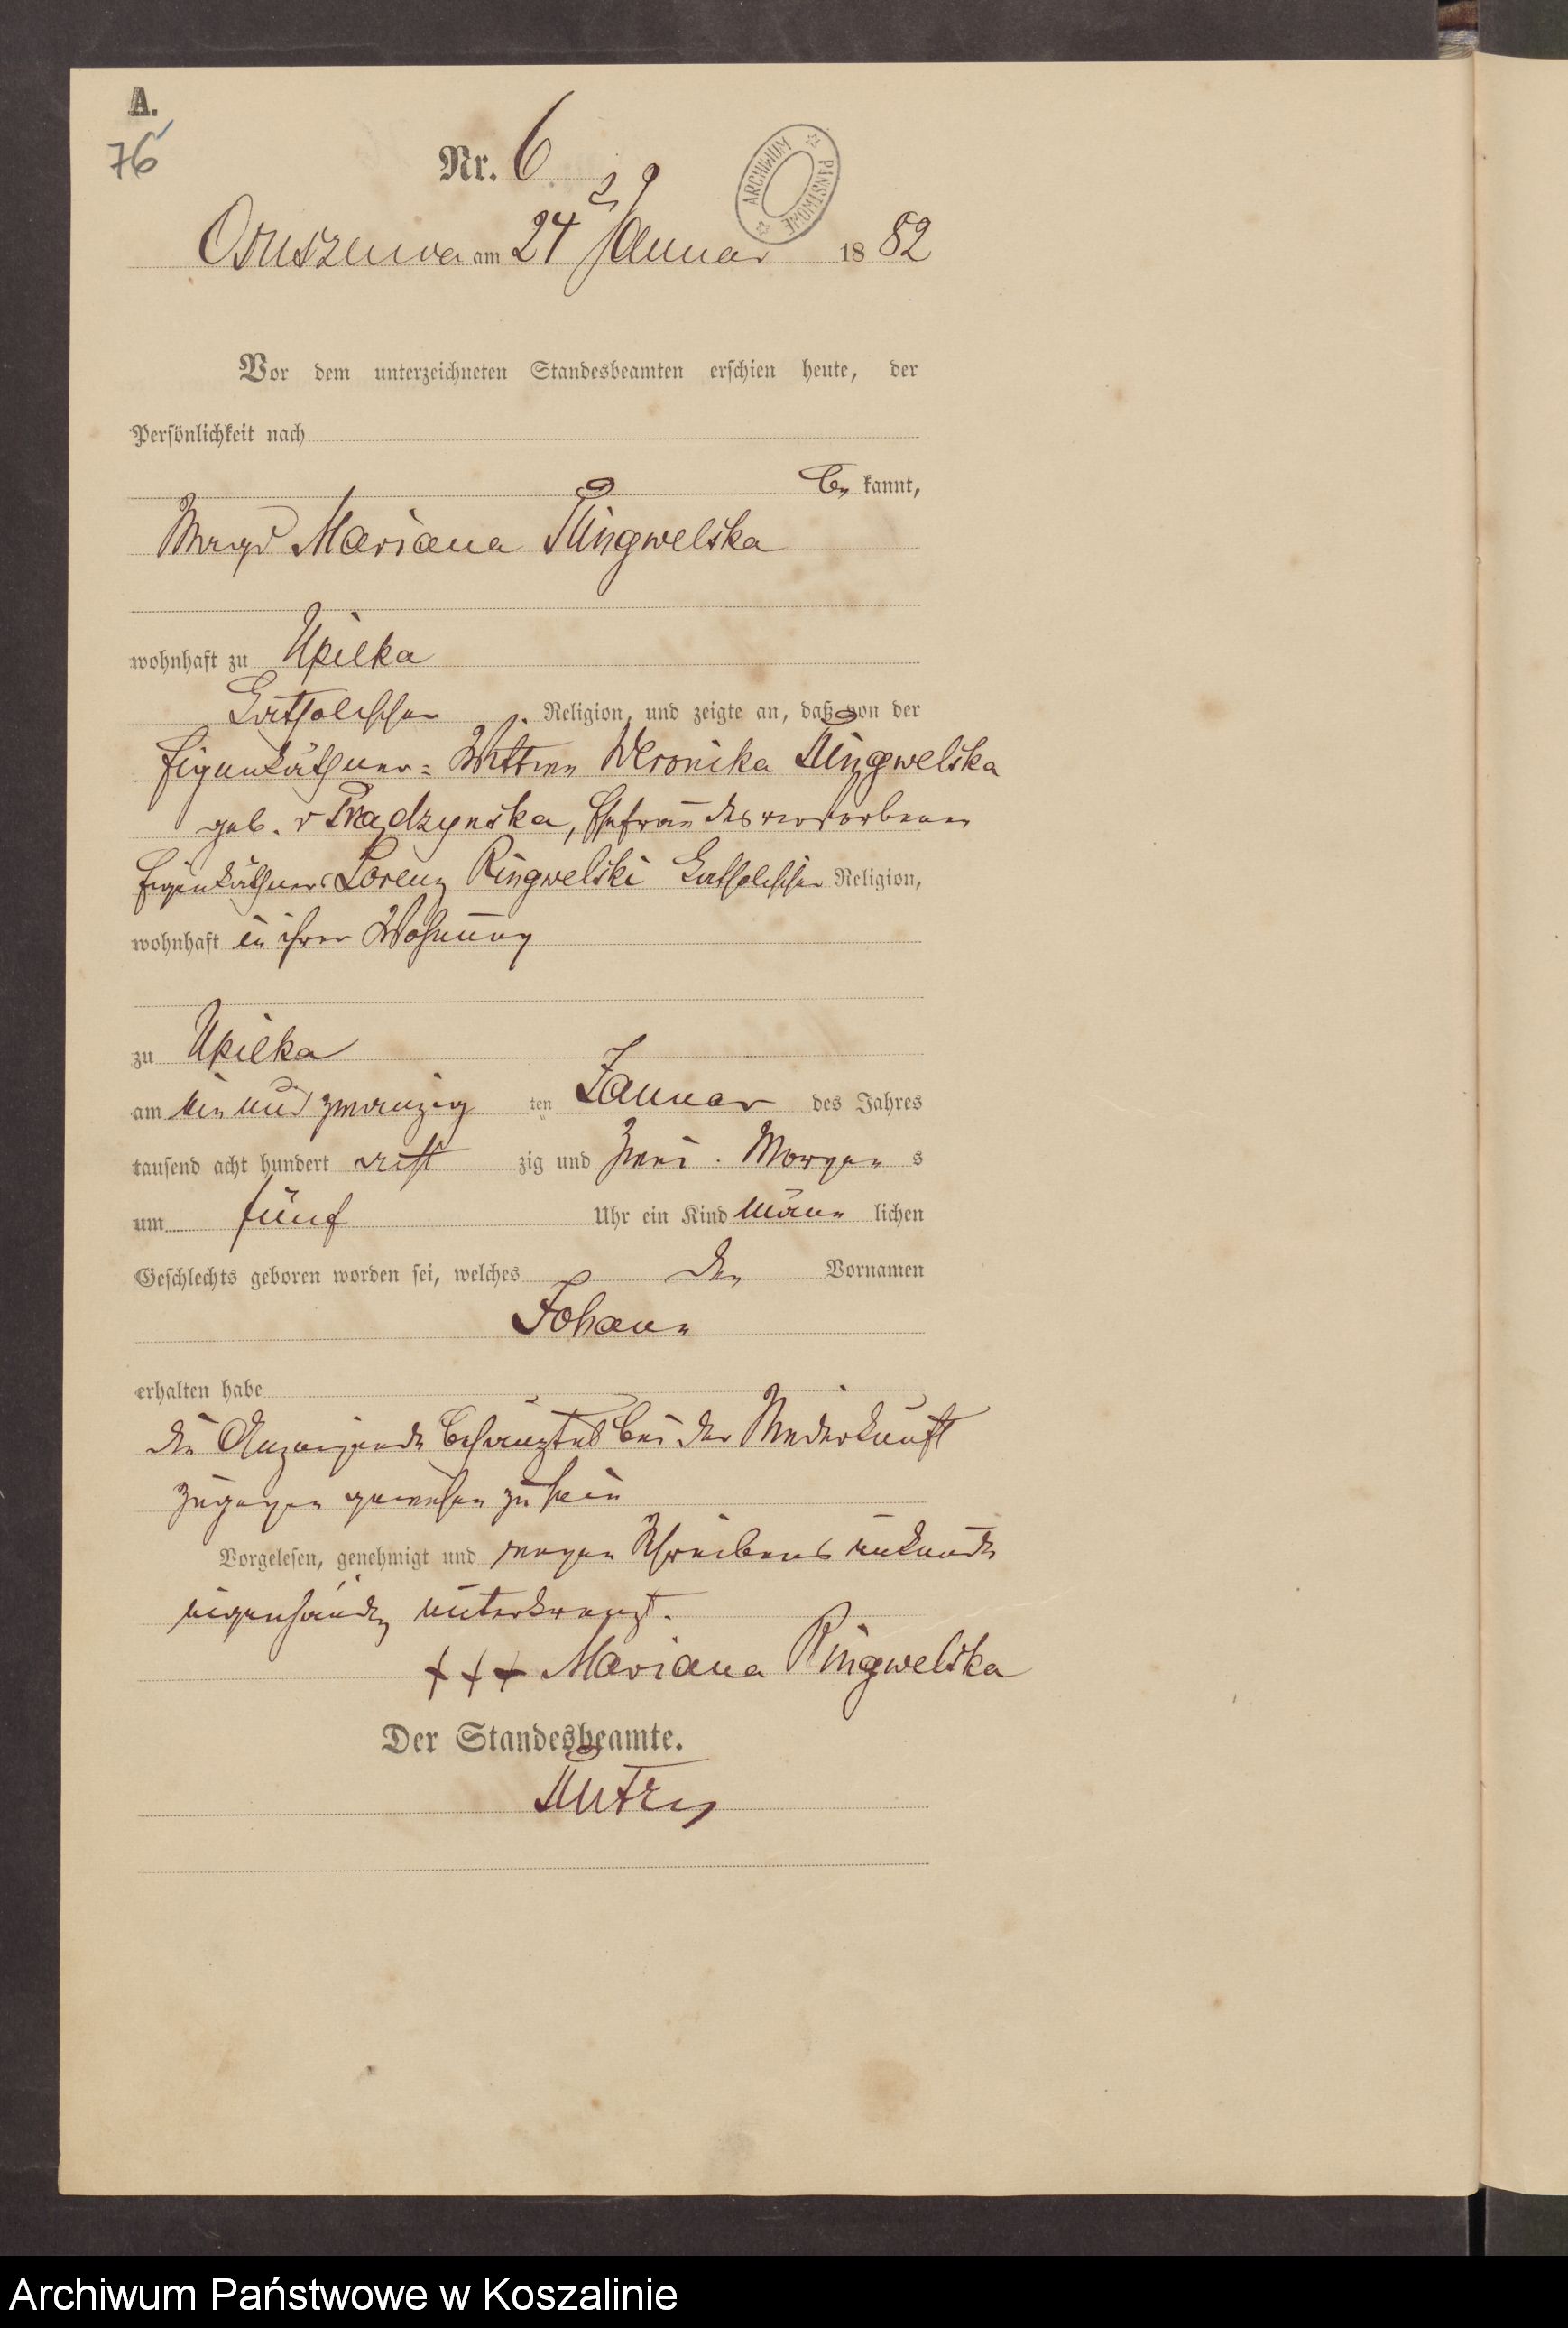 A.
76
Nr. 6
Ossuszewa am 24 Januar 1882
ARCHIWUM PAŃSTWOWE
Vor dem unterzeichneten Standesbeamten erschien heute, der
Persönlichkeit nach
be kannt,
Magd Mariana Ringwelska
wohnhaft zu Upilka
katholischer Religion, und zeigte an, daß von der
Eigenkäthner= Wittwe Weronika Ringwelska
geb. v Prądzynska, Ehefrau des verstorbenen
Eigenkäthners Lorenz Ringwelski katholischer Religion,
wohnhaft in ihrer Wohnung
zu Upilka
am ein und zwanzig ten Januar des Jahres
tausend acht hundert acht zig und zwei Morgen s
um fünf Uhr ein Kind männ lichen
Geschlechts geboren worden sei, welches den Vornamen
Johann
erhalten habe
die Anzeigende behauptet bei der Niederkunft
zugegen gewesen zu sein
Vorgelesen, genehmigt und wegen Schreibens unkunde
eigenhändig unterkreuzt.
+++ Mariana Ringwelska
Der Standesbeamte.
Archiwum Państwowe w Koszalinie